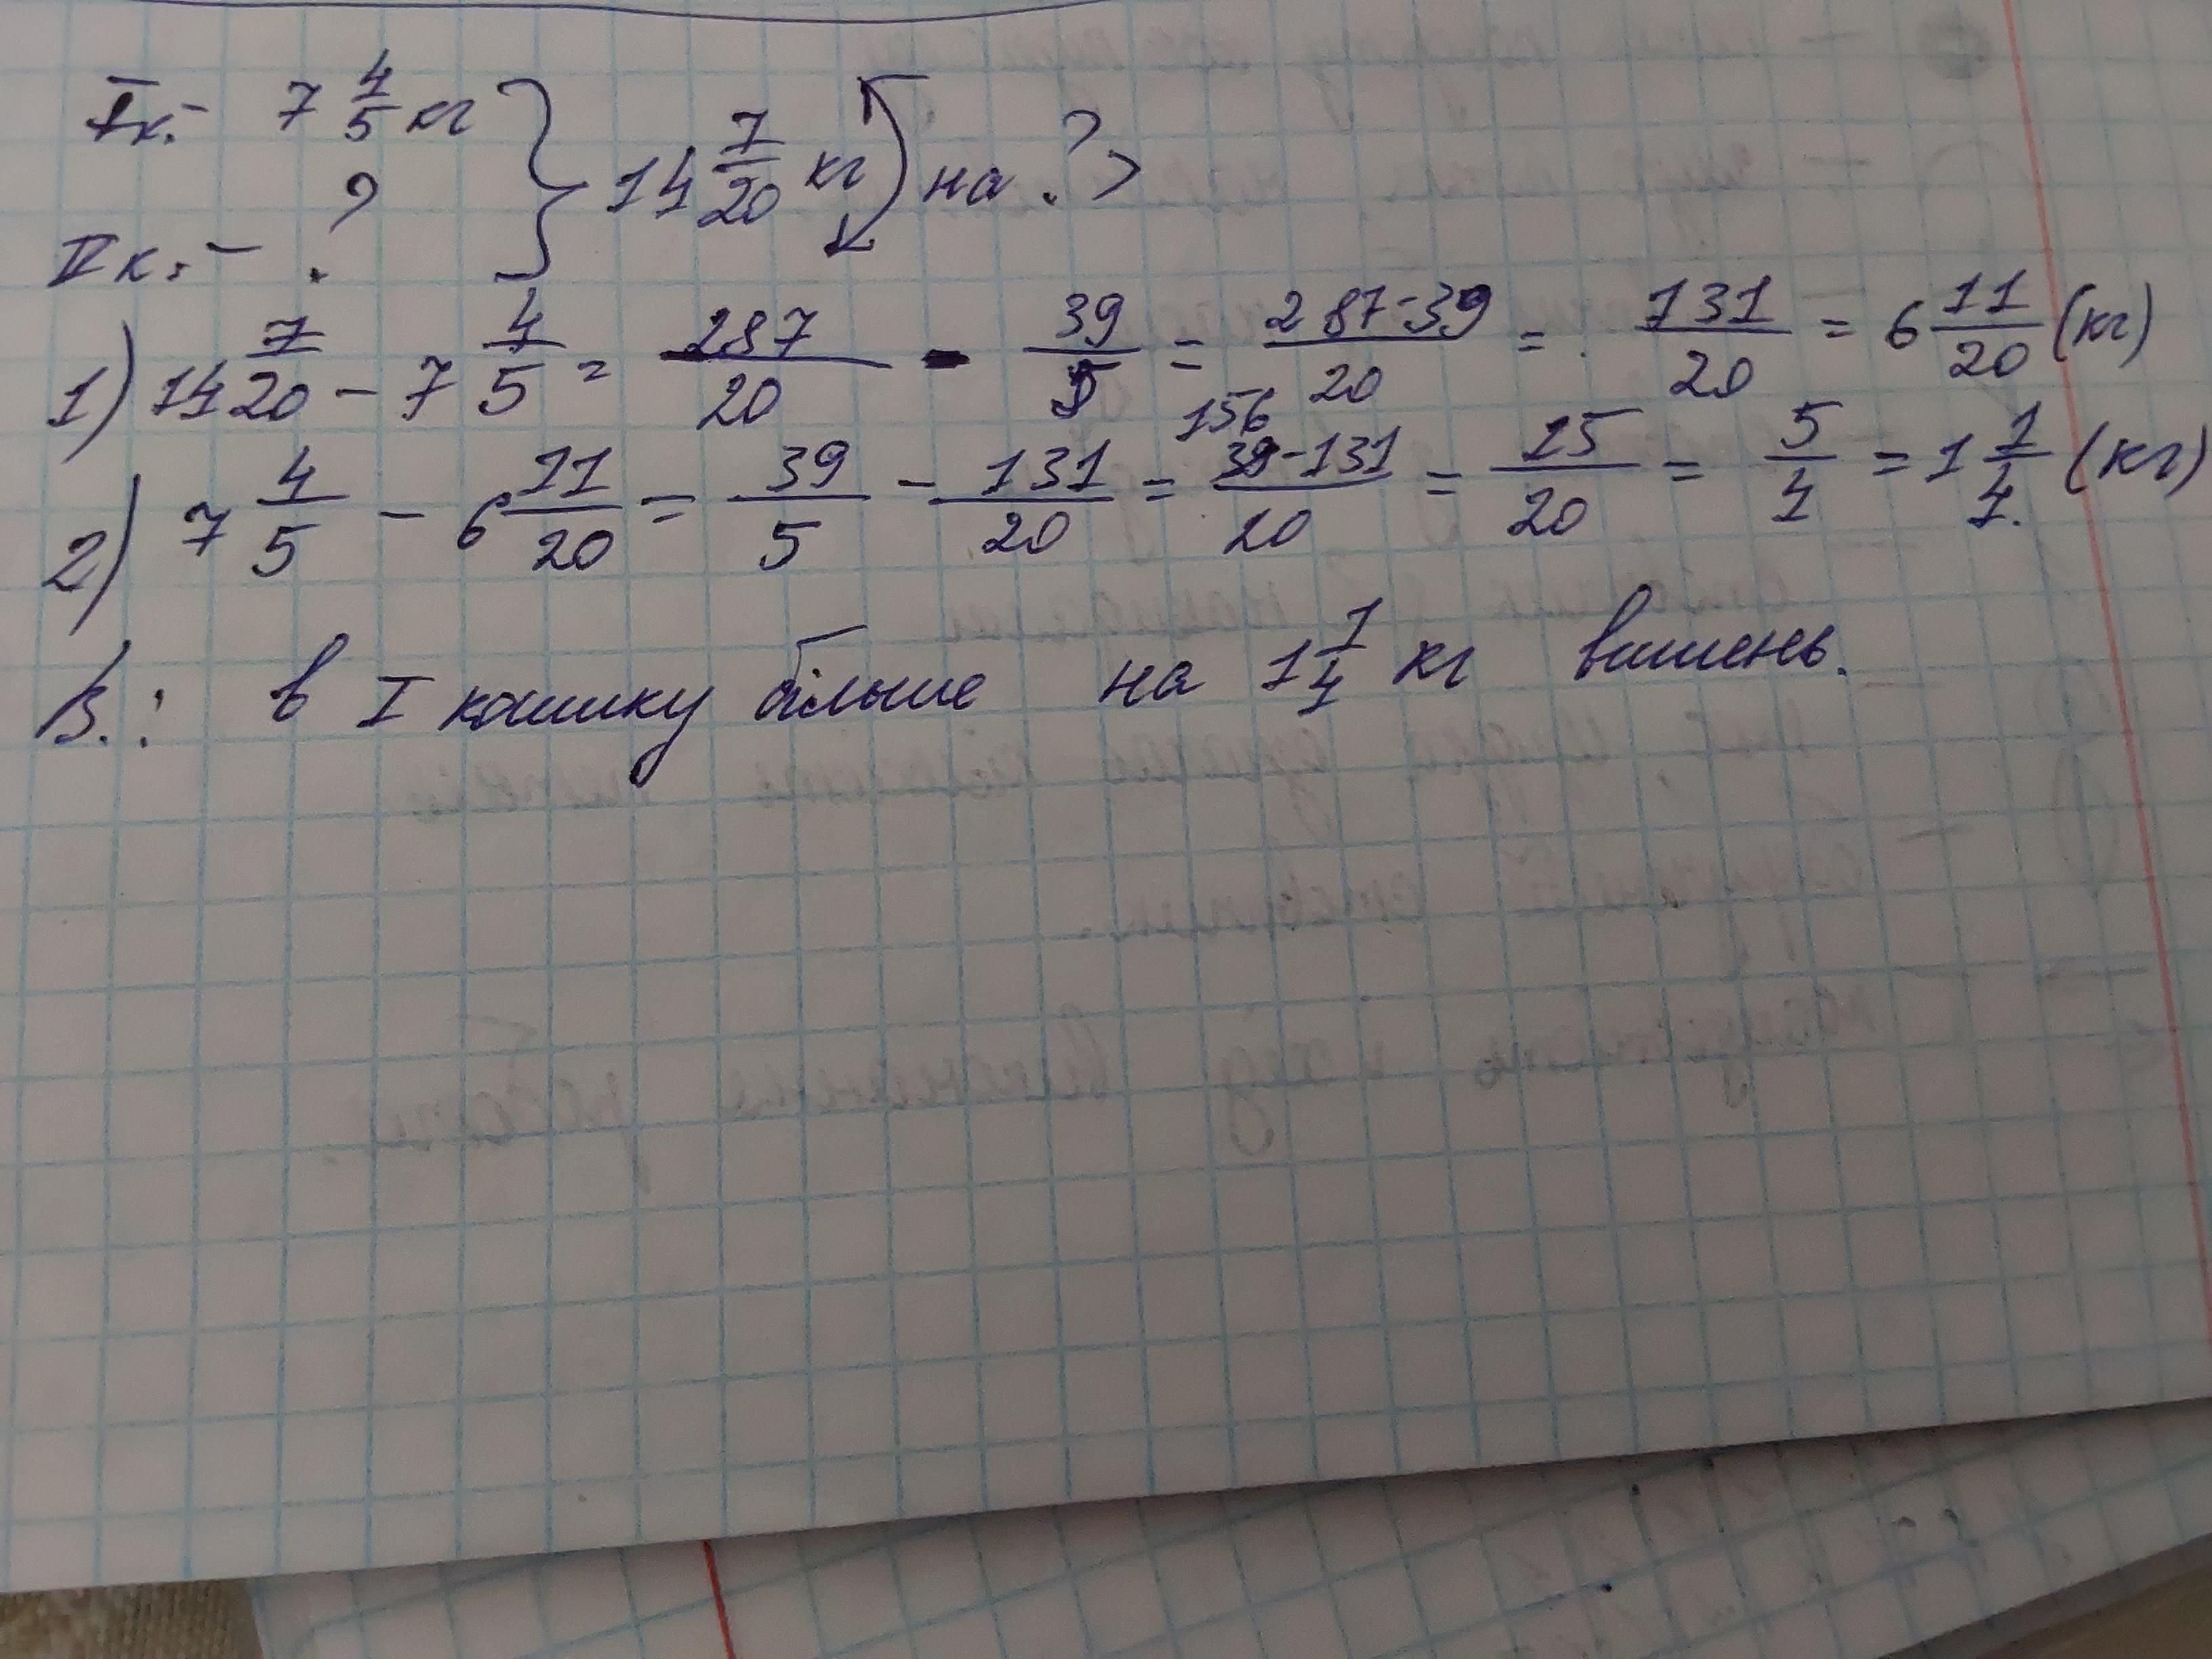 I к. - 7 4/5 кг } 14 7/20 кг на ? >
II к. - ?
1) 14 7/20 - 7 4/5 = 287/20 - 39/5 = 287-39/20 = 131/20 = 6 11/20 (кг)
156
2) 7 4/5 - 6 11/20 = 39/5 - 131/20 = 39-131/20 = 25/20 = 5/4 = 1 1/4 (кг)
В.: в I кошику більше на 1 1/4 кг вишень.